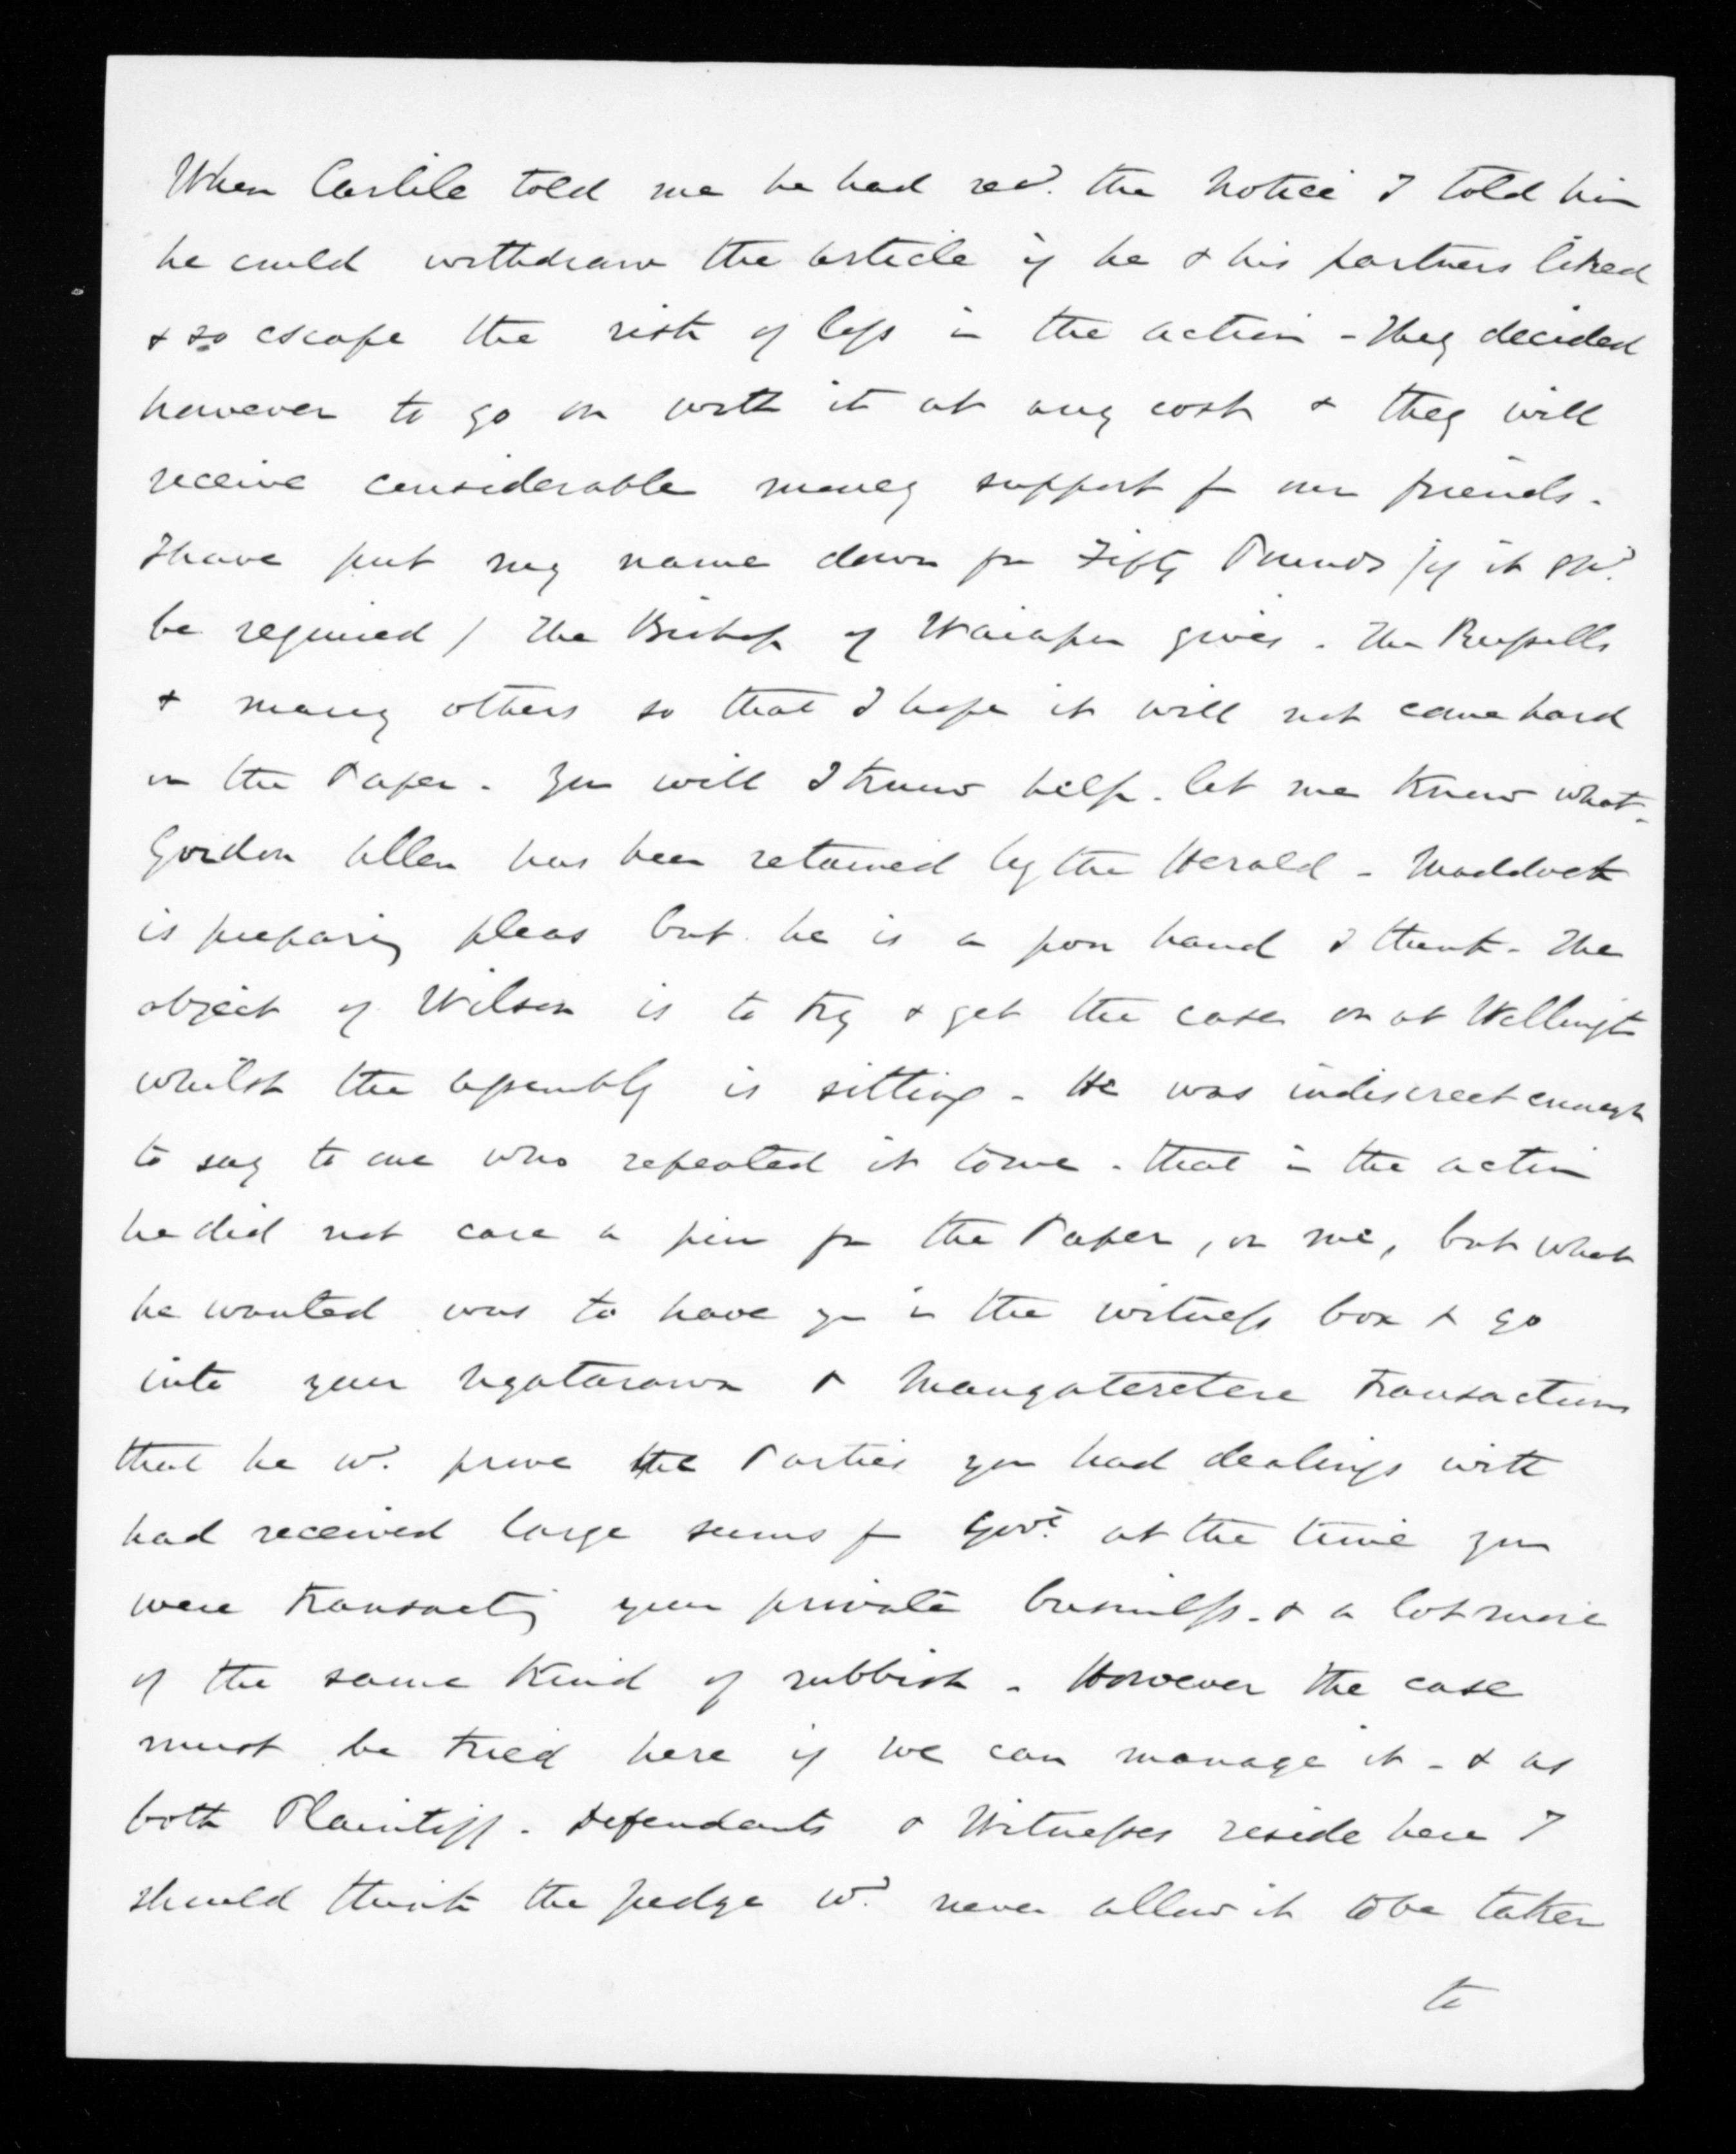 When Carlile told me he had recd. the Notice I told him
he could withdraw the article if he & his partners liked
& so escape the risk of loss in the action - They decided
however to go on with it at any cost & they will
receive considerable money support fm our friends.
I have put my name down for Fifty Pounds (if it shd.
be required) The Bishop of Waiapu gives. The Russells
& many others so that I hope it will not come hard
on the Paper. You will I know help. let me know what.
Gordon Allen has been retained by the Herald - Maddock
is preparing pleas but he is a poor hand I think. The
object of Wilson is to try & get the case on at Wellingtn
whilst the Assembly is sitting - He was indiscreet enough
to say to one who repeated it to me - that in the action
he did not care a pin for the Paper, or me, but what
he wanted was to have you in the witness box & go
into your Ngatarawa & Mangateretere transactions
that he wd. prove the Parties you had dealings with
had received large sums fm Govt. at the time you
were transacting your private business - & a lot more
of the same kind of rubbish - However the case
must be tried here if we can manage it - & as
both Plaintiff - Defendants & Witnesses reside here I
should think the Judge wd. never allow it to be taken
to